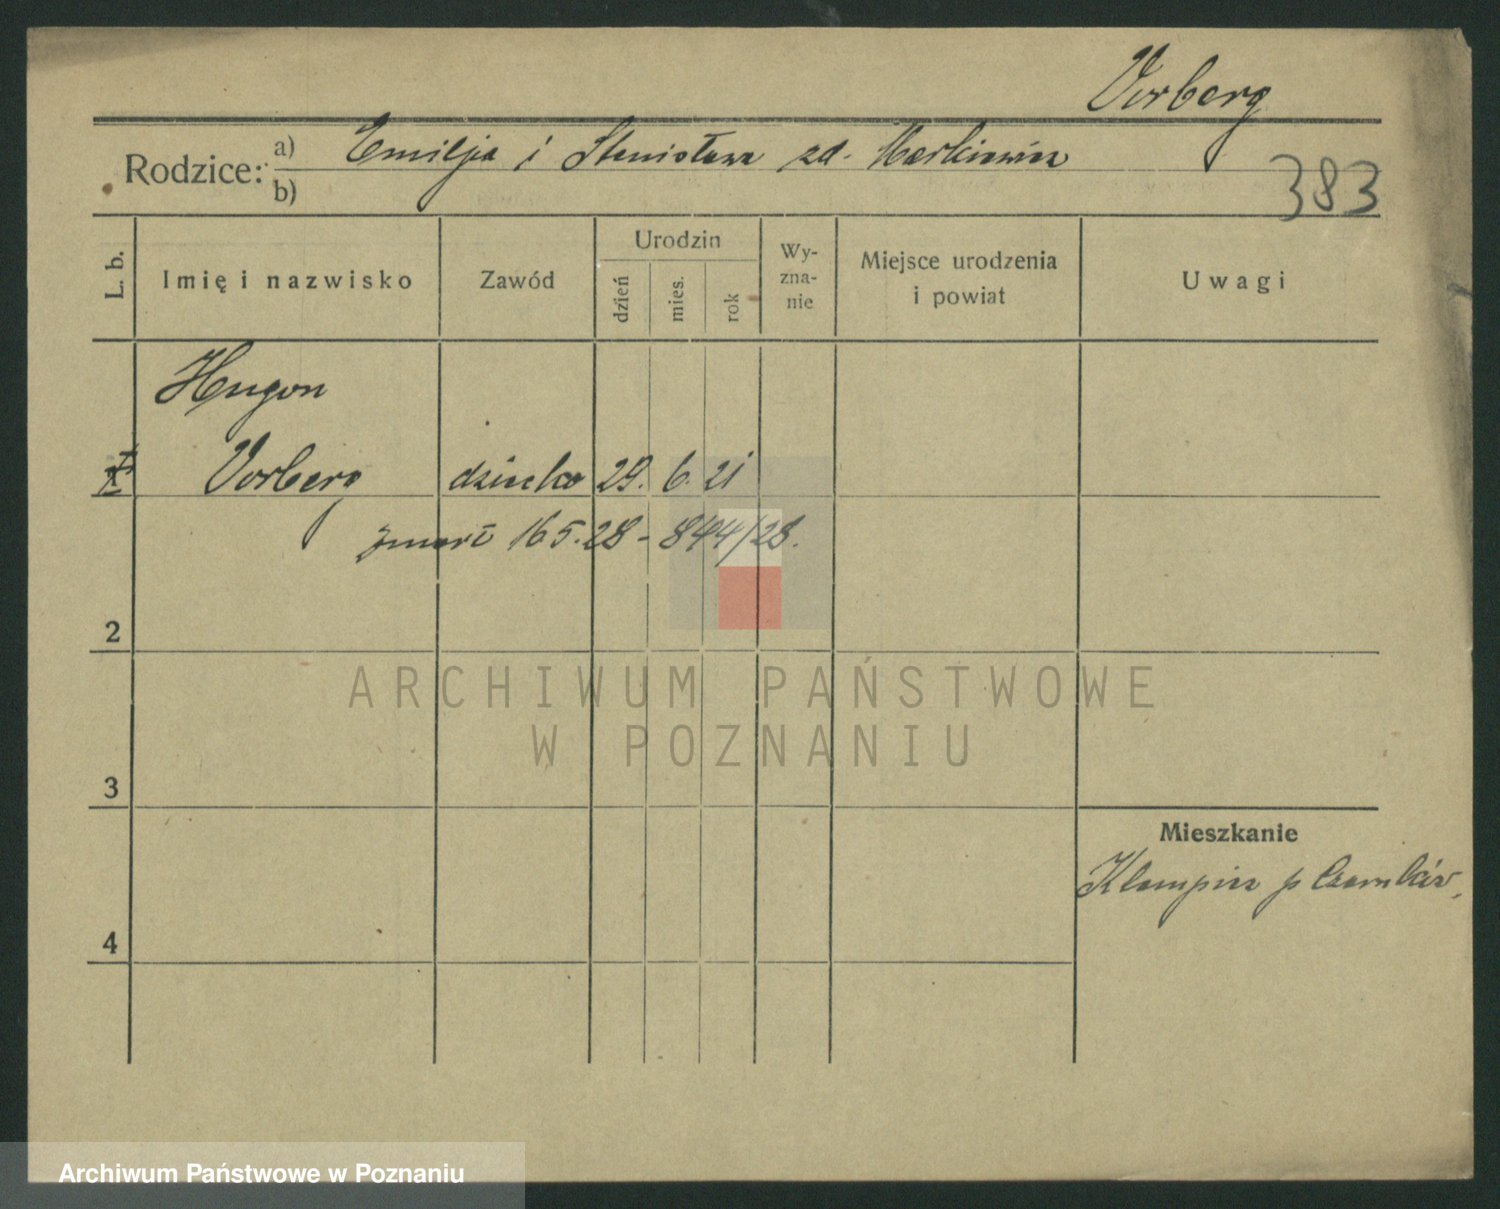 Vorberg
Rodzice: a) Emilja i Stanisława zd. Markiewicz
b)
383
L. b.
Imię i nazwisko
Zawód
Urodzin
dzień
mies.
rok
Wy-
zna-
nie
Miejsce urodzenia
i powiat
Uwagi
Hugon
Vorberg dziecko 29. 6. 21
zmarł 16 5. 28 - 844/28.
2
ARCHIWUM PAŃSTWOWE
W POZNANIU
3
Mieszkanie
Klempicz p Czarnków,
4
Archiwum Państwowe w Poznaniu